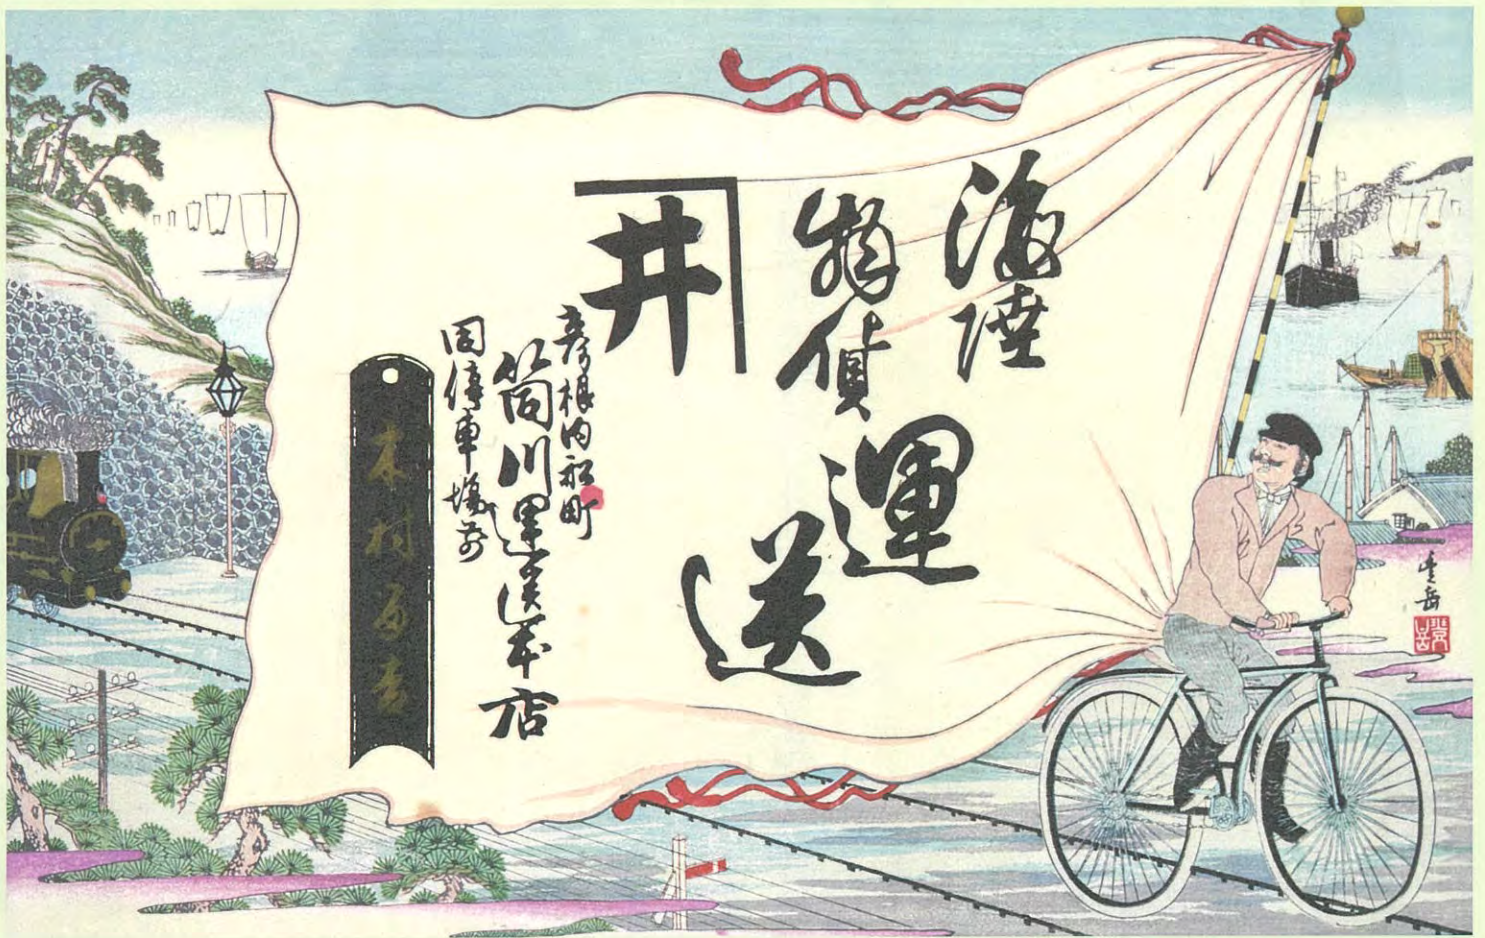 海陸
物貨
運送
井
彦根内船町
筒川運送本店
同停車場前
木村